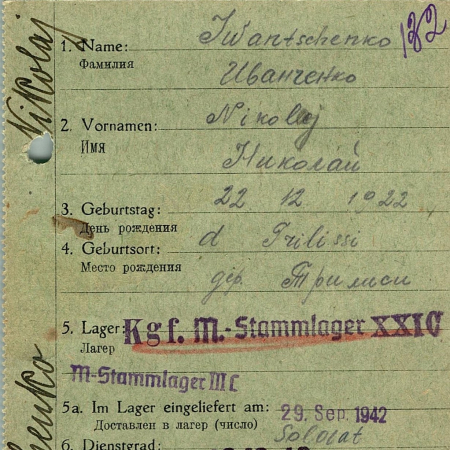 Nikolaj
enko
182
1. Name: Iwantschenko
Фамилия
Иванченко
2. Vornamen: Nikolaj
Имя
Николай
3. Geburtstag: 22 12 1922
День рождения
4. Geburtsort: d Trilissi
Место рождения
дер. Трилиси
5. Lager: Kgf. M.-Stammlager XXIC
Лагер
M-Stammlager
5a. Im Lager eingeliefert am: 29. Sep. 1942
Доставлен в лагер (число)
6. Dienstgrad: Soldat